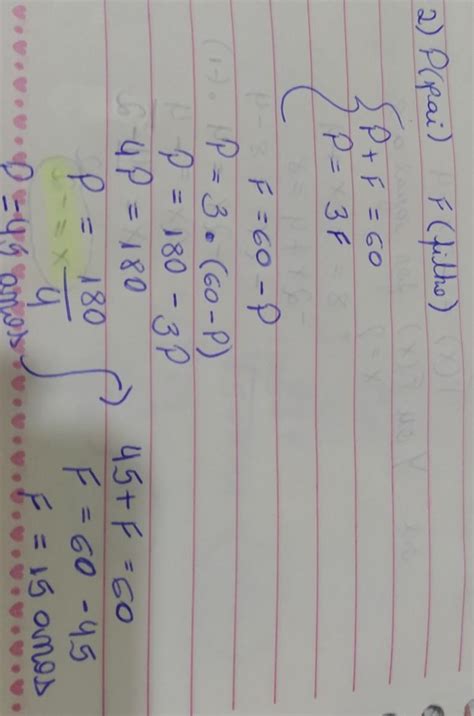 2) P(pai) F(filho)
P + F = 60
P = 3F
F = 60 - P
P = 3 . (60 - P)
P = 180 - 3P
4P = 180
P = 180
4
P = 45 anos
45 + F = 60
F = 60 - 45
F = 15 anos